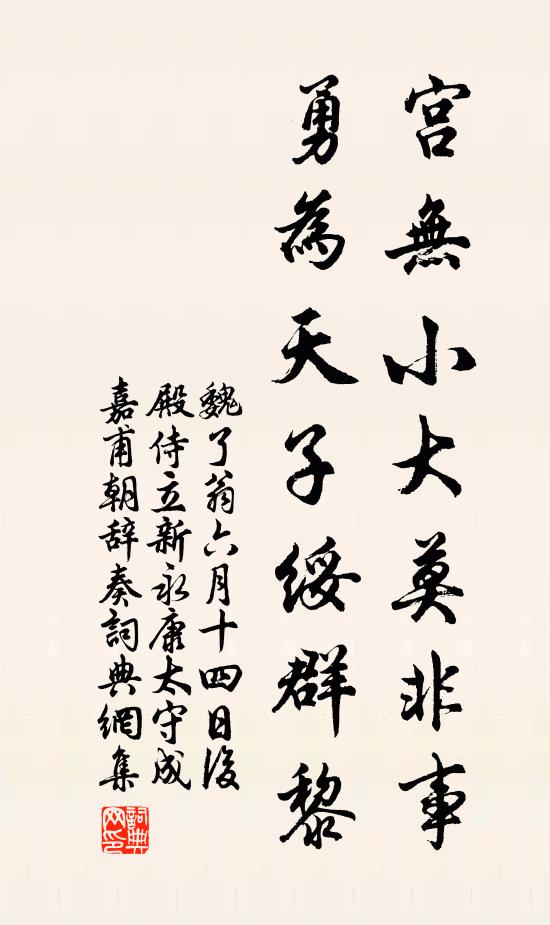 宫無小大莫非事
勇為天子綏群黎
魏了翁六月十四日後
殿侍立新永康太守成
嘉甫朝辞奏詞典網集
詞典網印